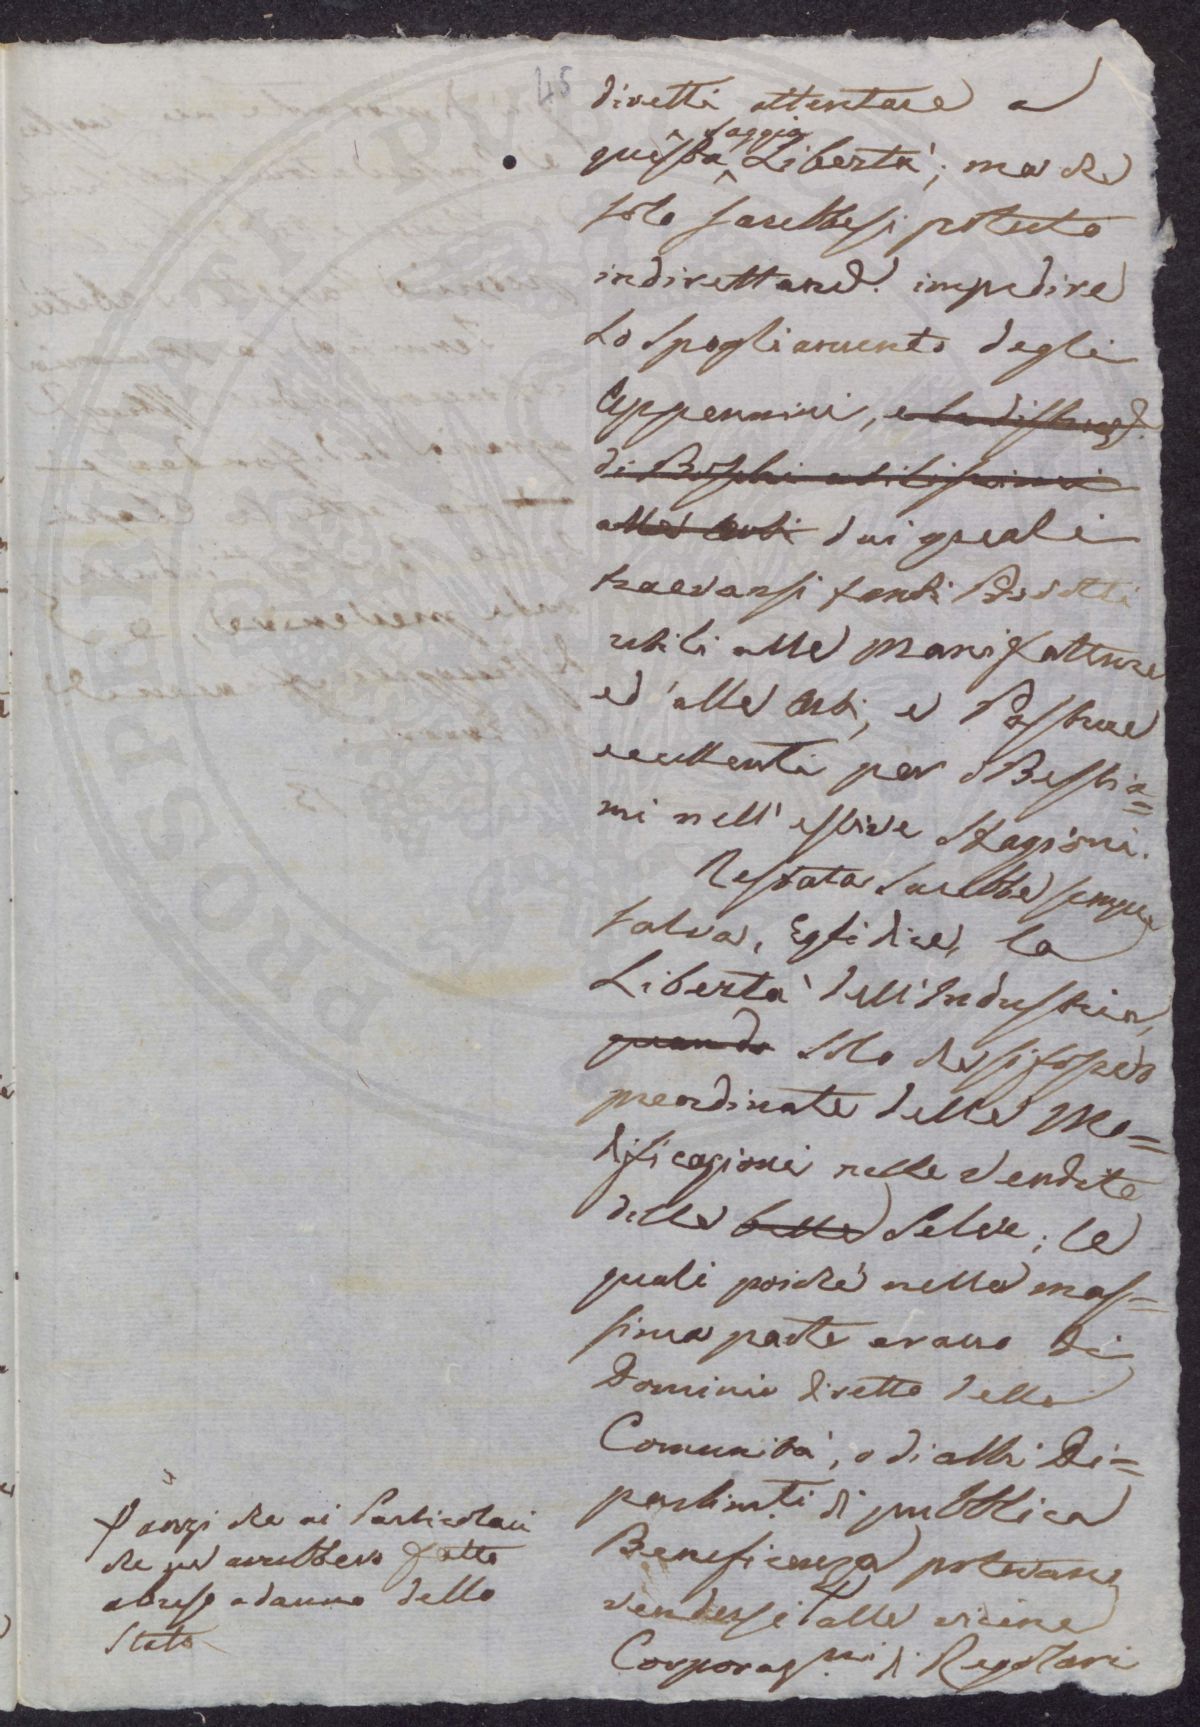 45
diretti attentare a
questa saggia Libertà; ma che
solo sarebbesi potuto
indirettam.e impedire
Lo spogliamento degli
Appennini, e la distruz.e
di Boschi utilissimi
alle Arti dai quali
traevansi tanti Prodotti
utili alle Manifatture
ed alle Arti, e Pasture
eccellenti per i Bestia=
mi nell' estive Stagioni.
Restata sarebbe sempre
salva, Egli dice, la
Libertà dell'Industria,
quando solo che si fossero
preordinate delle Mo=
dificazioni nelle vendite
delle belle Selve; le
quali poiché nella mas=
sima parte erano di
Dominio diretto della
Comunità, o di altri Di=
partim.ti di pubblica
Beneficenza potevano
vendersi alle vicine
Corporaz.ni di Regolari
anzi che ai Particolari
che ne avrebbero fatto
abuso a danno dello
Stato
PROSPERITATI PUBLICAE